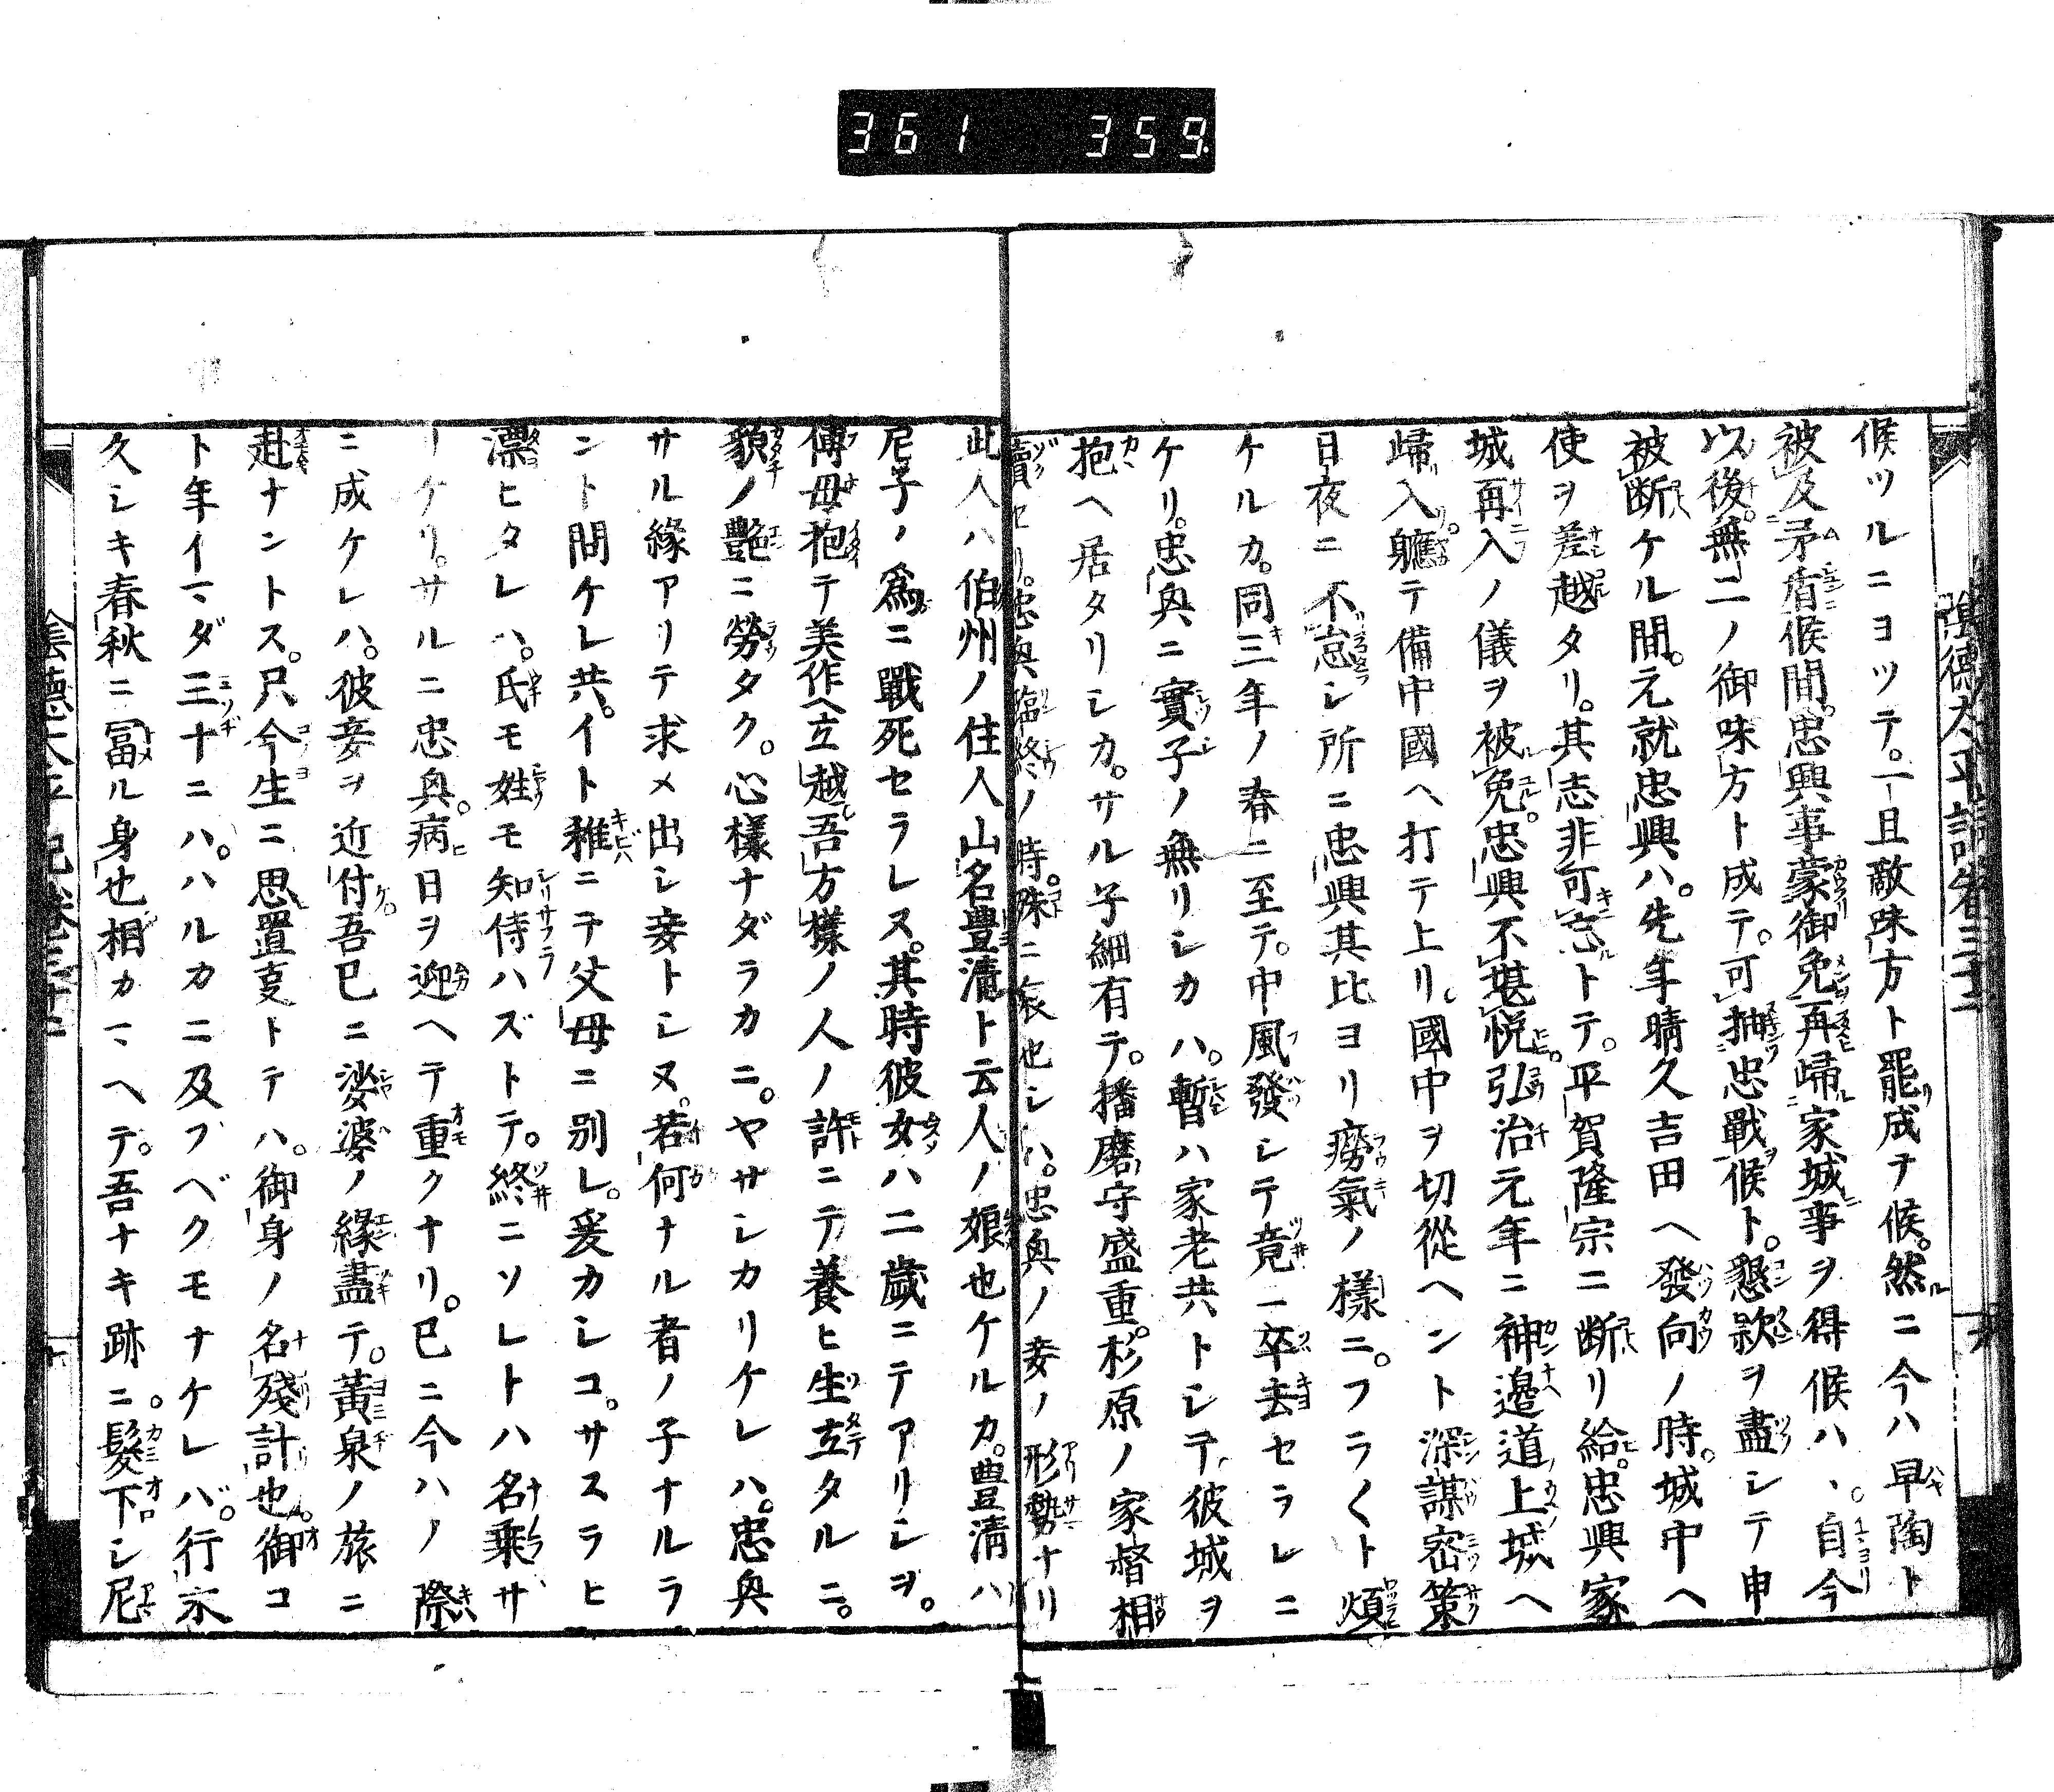 361 359
候ツルニヨツテ。一旦敵味方ト罷成テ候。然ニ今ハ早陶ト
被及矛盾候間。忠興事蒙御免再歸家城事ヲ得候ハヽ。自今
以後。無二ノ御味方ト成テ。可抽忠戰候ト。懇款ヲ盡シテ申
被断ケル間。元就忠興ハ。先年晴久吉田ヘ發向ノ時。城中ヘ
使ヲ差越タリ。其志非可忘トテ。平賀隆宗ニ断リ給。忠興家
城再入ノ儀ヲ被免。忠興不堪悦。弘治元年ニ神邊道上城ヘ
歸入。軈テ備中國ヘ打テ上リ。國中ヲ切從ヘント深謀密策
日夜ニ不怠シ所ニ忠興其比ヨリ癆氣ノ樣ニ。フラ〱ト煩
ケルカ。同三年ノ春ニ至テ。中風發シテ竟ニ卒去セラレニ
ケリ。忠奥ニ實子ノ無リシカハ。暫ハ家老共トシテ彼城ヲ
抱ヘ居タリシカ。サル子細有テ。播磨守盛重。杉原ノ家督相
續セリ。忠奥臨終ノ時。殊ニ哀也シハ。忠奥ノ妾ノ形勢ナリ
此人ハ伯州ノ住人山名豊清ト云人ノ娘也ケルカ。豊清ハ
尼子ノ爲ニ戰死セラレヌ。其時彼女ハ二歳ニテアリシヲ。
傅母抱テ美作ヘ立越吾方樣ノ人ノ許ニテ養ヒ生立タルニ。
貌ノ艶ニ勞タク。心樣ナダラカニ。ヤサシカリケレハ。忠奥
サル縁アリテ求メ出シ妾トシヌ。若何ナル者ノ子ナルラ
ント問ケレ共。イト稚ニテ父母ニ別レ。爰カシコ。サスラヒ
漂ヒタレハ。氏モ姓モ知侍ハズトテ。終ニソレトハ名乗サ
リケリ。サルニ忠奥。病日ヲ迎ヘテ重クナリ。已ニ今ハノ際
ニ成ケレハ。彼妾ヲ近付吾已ニ娑婆ノ縁盡テ。黄泉ノ旅ニ
赴ナントス。只今生ニ思置叓トテハ。御身ノ名殘計也。御コ
ト年イマダ三十ニハ。ハルカニ及ブベクモナケレバ。行末
久シキ春秋ニ冨ル身也相カマヘテ。吾ナキ跡ニ。髪下シ尼